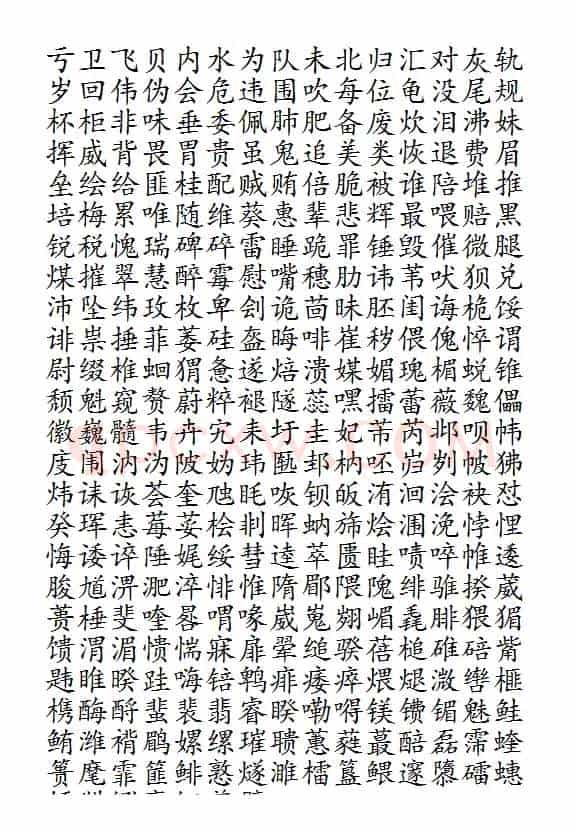 亏卫飞贝内水为队未北归汇对灰轨
岁回伟伪会危违围吹每位龟没尾规
杯柜非味垂委佩肺肥备废炊泪沸妹
挥威背畏胃贵虽鬼追美类恢退费眉
垒绘给匪桂配贼贿倍脆被谁陪堆推
培梅累唯随维葵惠辈悲辉最喂赔黑
锐税愧瑞碑碎雷睡跪罪锤毁催微腿
煤摧翠慧醉霉慰嘴穗肋讳苇吠狈兑
沛坠纬玫枚卑刽诡茴昧胚闺诲桅馁
诽祟捶菲萎硅盔晦啡崔秽偎傀悴谓
尉缀椎蛔猬惫遂焙溃媒媚瑰楣蜕锥
颓魁窥赘蔚粹褪隧蕊嘿擂蕾薇魏儡
徽巍髓韦卉宄耒圩圭妃芾芮邶呗帏
庋闱汭沩陂妫玮匦邽柄呸岿刿帔狒
炜诔诙荟奎虺眊咴钡皈洧洄浍袂怼
癸珲恚莓荽桧剕晖蚋旆烩涠浼悖悝
悔诿谇陲娓绥彗逵萃匮眭啧啐帷逶
脧馗淠淝淬悱惟隋郿隈隗绯骓揆葳
蒉棰斐喹晷喟喙崴嵬翙嵋毳腓猥猸
馈渭湄愦惴寐扉翚缒骙蓓槌碓碚觜
韪睢暌跬嗨锫鹎痱痿瘁煨煺溦辔榧
槜酶酹蜚裴翡睿睽嘞嘚镁镄镅魅鲑
鲔潍褙鹛嫘缧璀聩蕙蕤蕞醅磊霈蝰
篑麾霏篚鲱憝燧濉檑簋鳂邃隳礌蟪